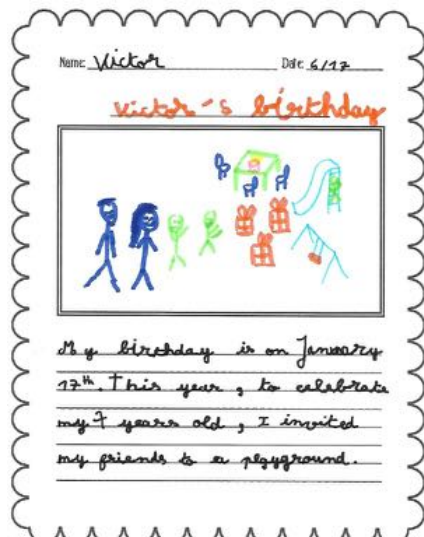 Name: Victor Date: 6/17
Victor's birthday
My birthday is on January
17th. This year, to celebrate
my 7 years old, I invited
my friends to a playground.